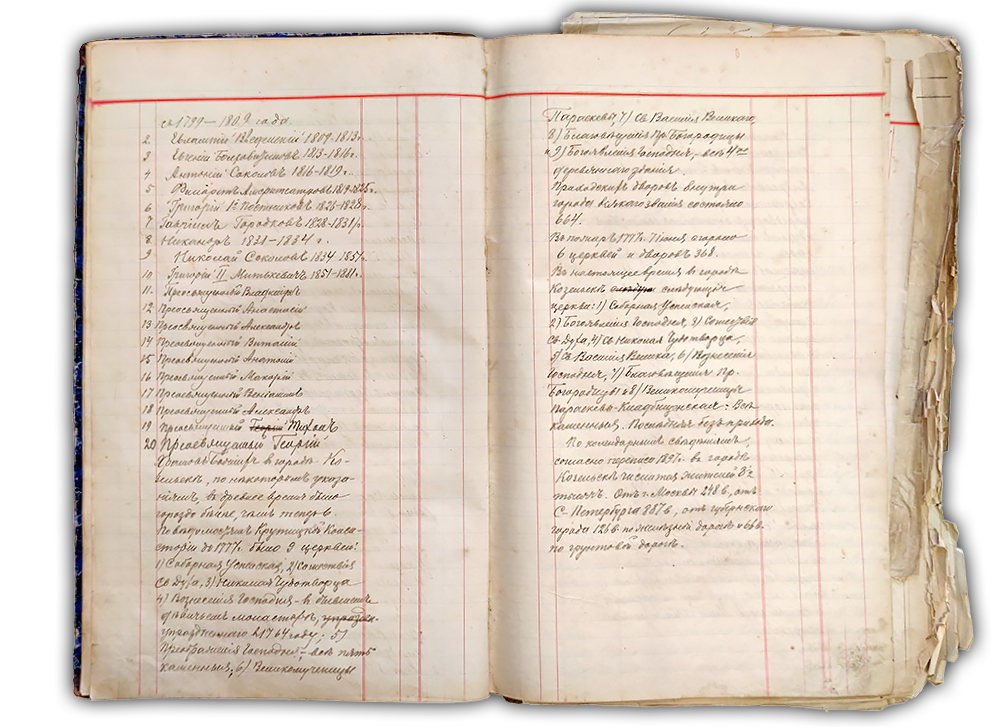 съ 1799 — 1809 года.
2 Евлампій Введенскій 1809-1813 г.
3 Евгеній Болховитиновъ 1813-1816 г.
4 Антоній Соколовъ 1816-1819 г.
5 Филаретъ Амфитеатровъ 1819-1825 г.
6 Григорій 1й Постниковъ 1825-1828 г.
7 Гавріилъ Городковъ 1828-1831 г.
8 Никаноръ 1831-1834 г.
9 Николай Соколовъ 1834 1851 г.
10 Григорій II Митькевичъ 1851-1881 г.
11. Преосвященный Владиміръ
12 Преосвященный Анастасій
13 Преосвященный Александръ
14 Преосвященный Виталій
15 Преосвященный Анатолій
16 Преосвященный Макарій
17 Преосвященный Веніаминъ
18 Преосвященный Александръ
19 Преосвященный Георгій Тихонъ
20 Преосвященный Георгій
Храмовъ Божіихъ въ городѣ Ко-
зельскѣ, по некоторымъ указа-
ніямъ, въ древнее время было
гораздо болѣе, чѣмъ теперь.
По вѣдомостямъ Крутицкой Консис-
торіи до 1777 г. было 9 церквей:
1) Соборная Успенская, 2) Сошествія
Св. Духа, 3) Николая Чудотворца
4) Вознесенія Господня - въ бывшемъ
дѣвичьемъ монастырѣ, упраздн-
упраздненнаго 1764 году, 5)
Преображенія Господня, - всѣ пять
каменныя; 6) Великомученицы
Параскевы, 7) Св Василія Великаго
8) Благовѣщенія Пр. Богородицы
и 9) Богоявленія Господня, - всѣ 4
деревяннаго зданія.
Приходскихъ дворовъ внутри
города всякаго званія состояло
664.
Въ пожаръ 1777 г. 7 іюня сгорѣло
6 церквей и дворовъ 368.
Въ настоящее время въ городѣ
Козельскѣ слѣдующія
церкви: 1) Соборная Успенская,
2) Богоявленія Господня, 3) Сошествія
Св. Духа, 4) Св Николая Чудотворца,
5) Св Василія Велика, 6) Вознесенія
Господня, 7) Благовѣщенія Пр.
Богородицы и 8) Великомученицы
Параскевы-Кладбищенская. Всѣ
каменныя. Послѣдняя безъ прихода.
По календарнымъ свѣдѣніямъ,
согласно переписи 1897 г. въ городѣ
Козельскѣ числится жителей
тысячъ. Отъ г. Москвы 248 в., отъ
С-Петербурга 857 в, отъ губернскаго
города по желѣзной дорогѣ и 66 в.
по грунтовой дорогѣ.